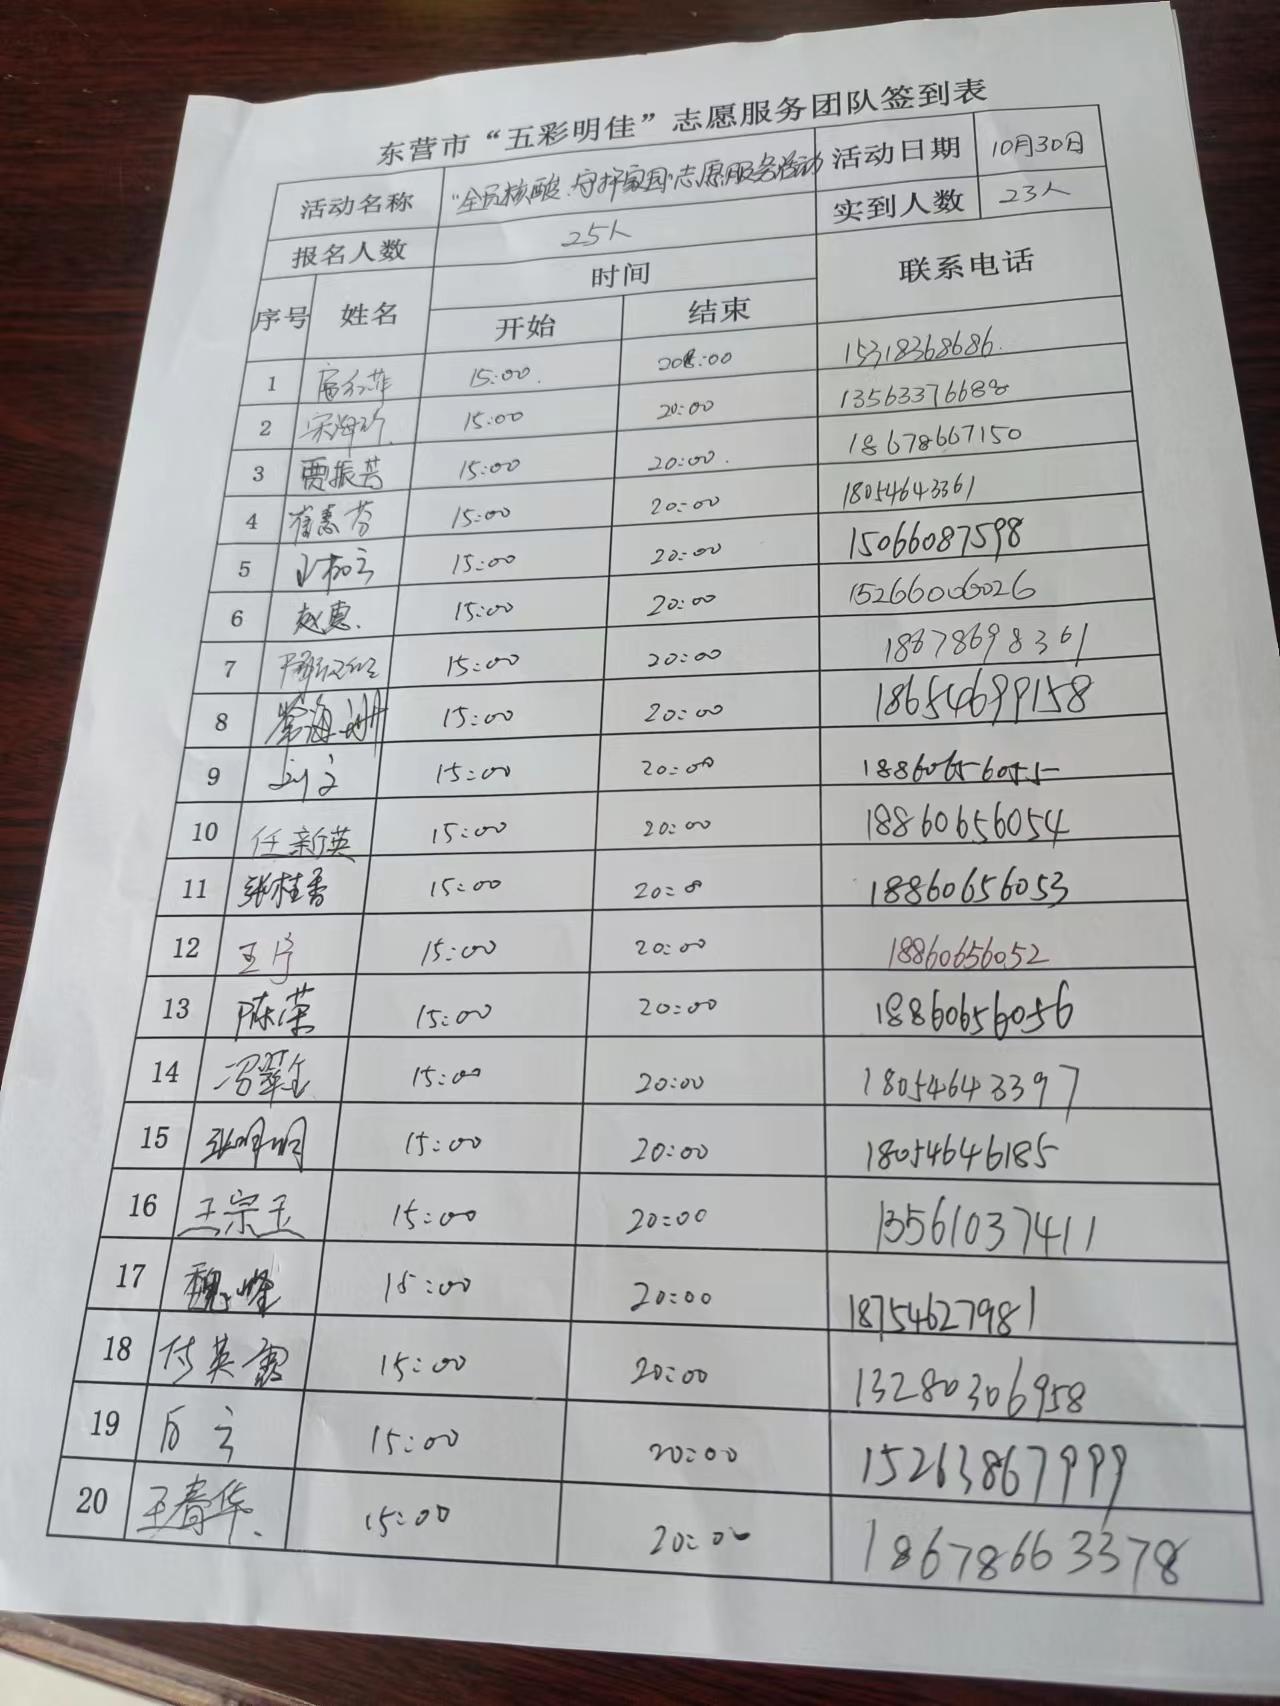 东营市“五彩明佳”志愿服务团队签到表
活动名称 “全员核酸、守护家园”志愿服务活动 活动日期 10月30日
报名人数 25人 实到人数 23人
序号 姓名 时间 联系电话
开始 结束
1 15:00. 20:00 15318368686.
2 15:00 20:00 13563376688
3 贾振芳 15:00 20:00. 18678667150
4 崔惠芳 15:00 20:00 18054643361
5 15:00 20:00 15066087598
6 赵惠. 15:00 20:00 15266006026
7 15:00 20:00 18678698361
8 常海洲 15:00 20:00 18654699158
9 15:00 20:00 18860656055
10 任新英 15:00 20:00 18860656054
11 张桂香 15:00 20:0 18860656053
12 15:00 20:00 18860656052
13 陈荣 15:00 20:00 18860656056
14 15:00 20:00 18054643397
15 张明明 15:00 20:00 18054646185
16 王宗玉 15:00 20:00 13561037411
17 魏峰 15:00 20:00 18754627981
18 付英霞 15:00 20:00 13280306958
19 15:00 20:00 15263867999
20 王春华. 15:00 20:00 18678663378